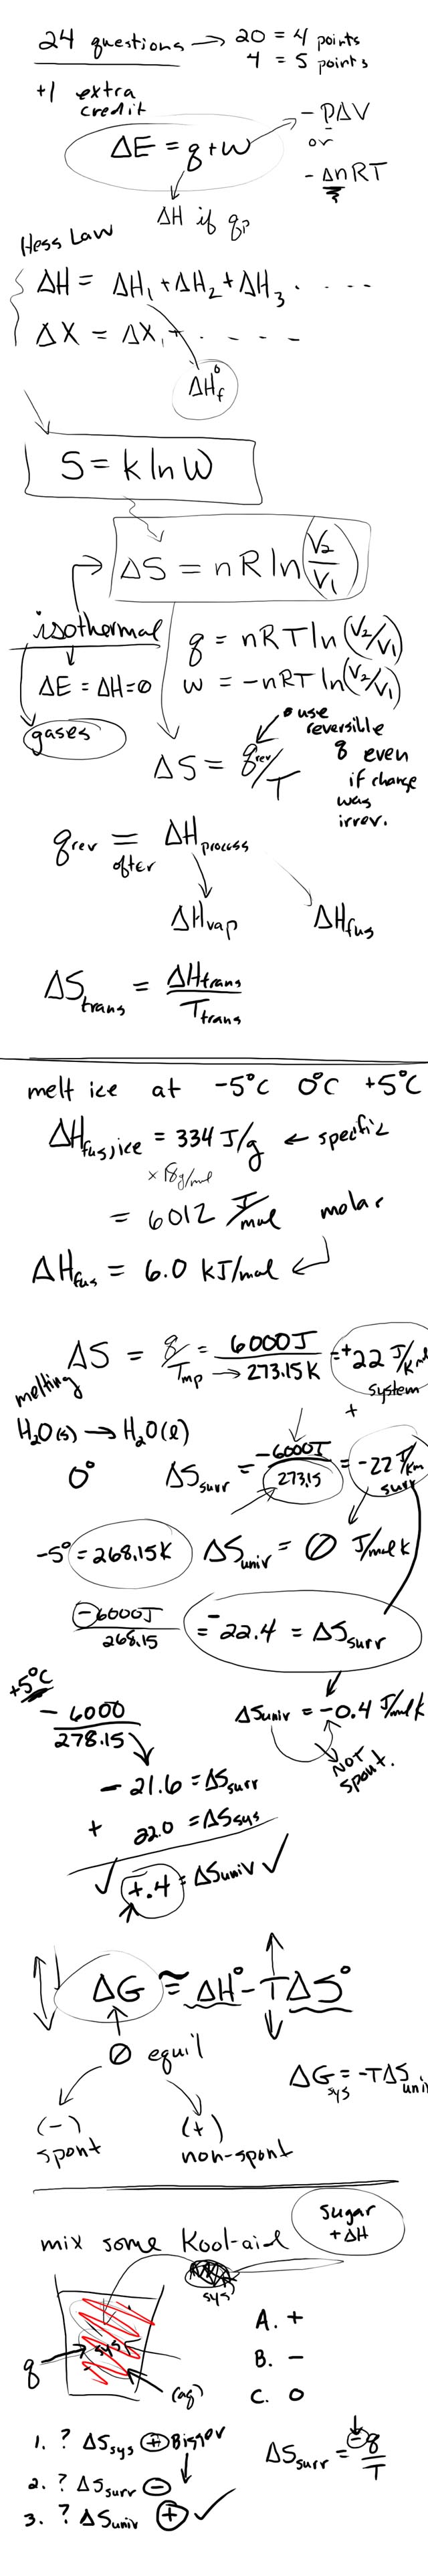 24 questions → 20 = 4 points
4 = 5 points
+1 extra credit
ΔE = q + w
- PΔV
or
- ΔnRT
ΔH if qp
Hess Law
ΔH = ΔH1 + ΔH2 + ΔH3 . . . .
ΔX = ΔX1 + . - - -
ΔH°f
S = k ln W
ΔS = nR ln (V2/V1)
isothermal
ΔE = ΔH = 0
gases
q = nRT ln (V2/V1)
w = -nRT ln (V2/V1)
ΔS = qrev/T
use reversible q even if change was irrev.
qrev = ΔHprocess
often
ΔHvap
ΔHfus
ΔStrans = ΔHtrans/Ttrans
melt ice at -5°C 0°C +5°C
ΔHfus,ice = 334 J/g ← specific
× 18g/mol
= 6012 J/mol molar
ΔHfus = 6.0 kJ/mol
ΔS = q/Tmp → 6000J/273.15K = +22 J/Kmol
melting
system
+
H2O(s) → H2O(l)
0°
ΔSsurr = -6000J/273.15 = -22 J/Km
surr
-5° = 268.15K
ΔSuniv = 0 J/mol k
-6000J/268.15 = -22.4 = ΔSsurr
+5°C
ΔSuniv = -0.4 J/mol k
NOT spont.
- 6000/278.15
- 21.6 = ΔSsurr
+ 22.0 = ΔSsys
√ +.4 = ΔSuniv ✓
ΔG ≈ ΔH° - TΔS°
0 equil
ΔGsys = -TΔSuniv
(-) spont
(+) non-spont
mix some Kool-aid
sugar +ΔH
sys
sys
q
(aq)
A. +
B. -
C. 0
1. ? ΔSsys + Bigger
2. ? ΔSsurr -
3. ? ΔSuniv + ✓
ΔSsurr = -q/T